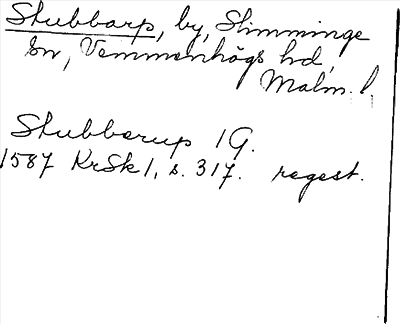 Stubbarp, by, Slimminge
sn, Vemmenhögs hd,
Malm. l.
Stubberup 1 G.
1587 KrSk 1, s. 317. regest.